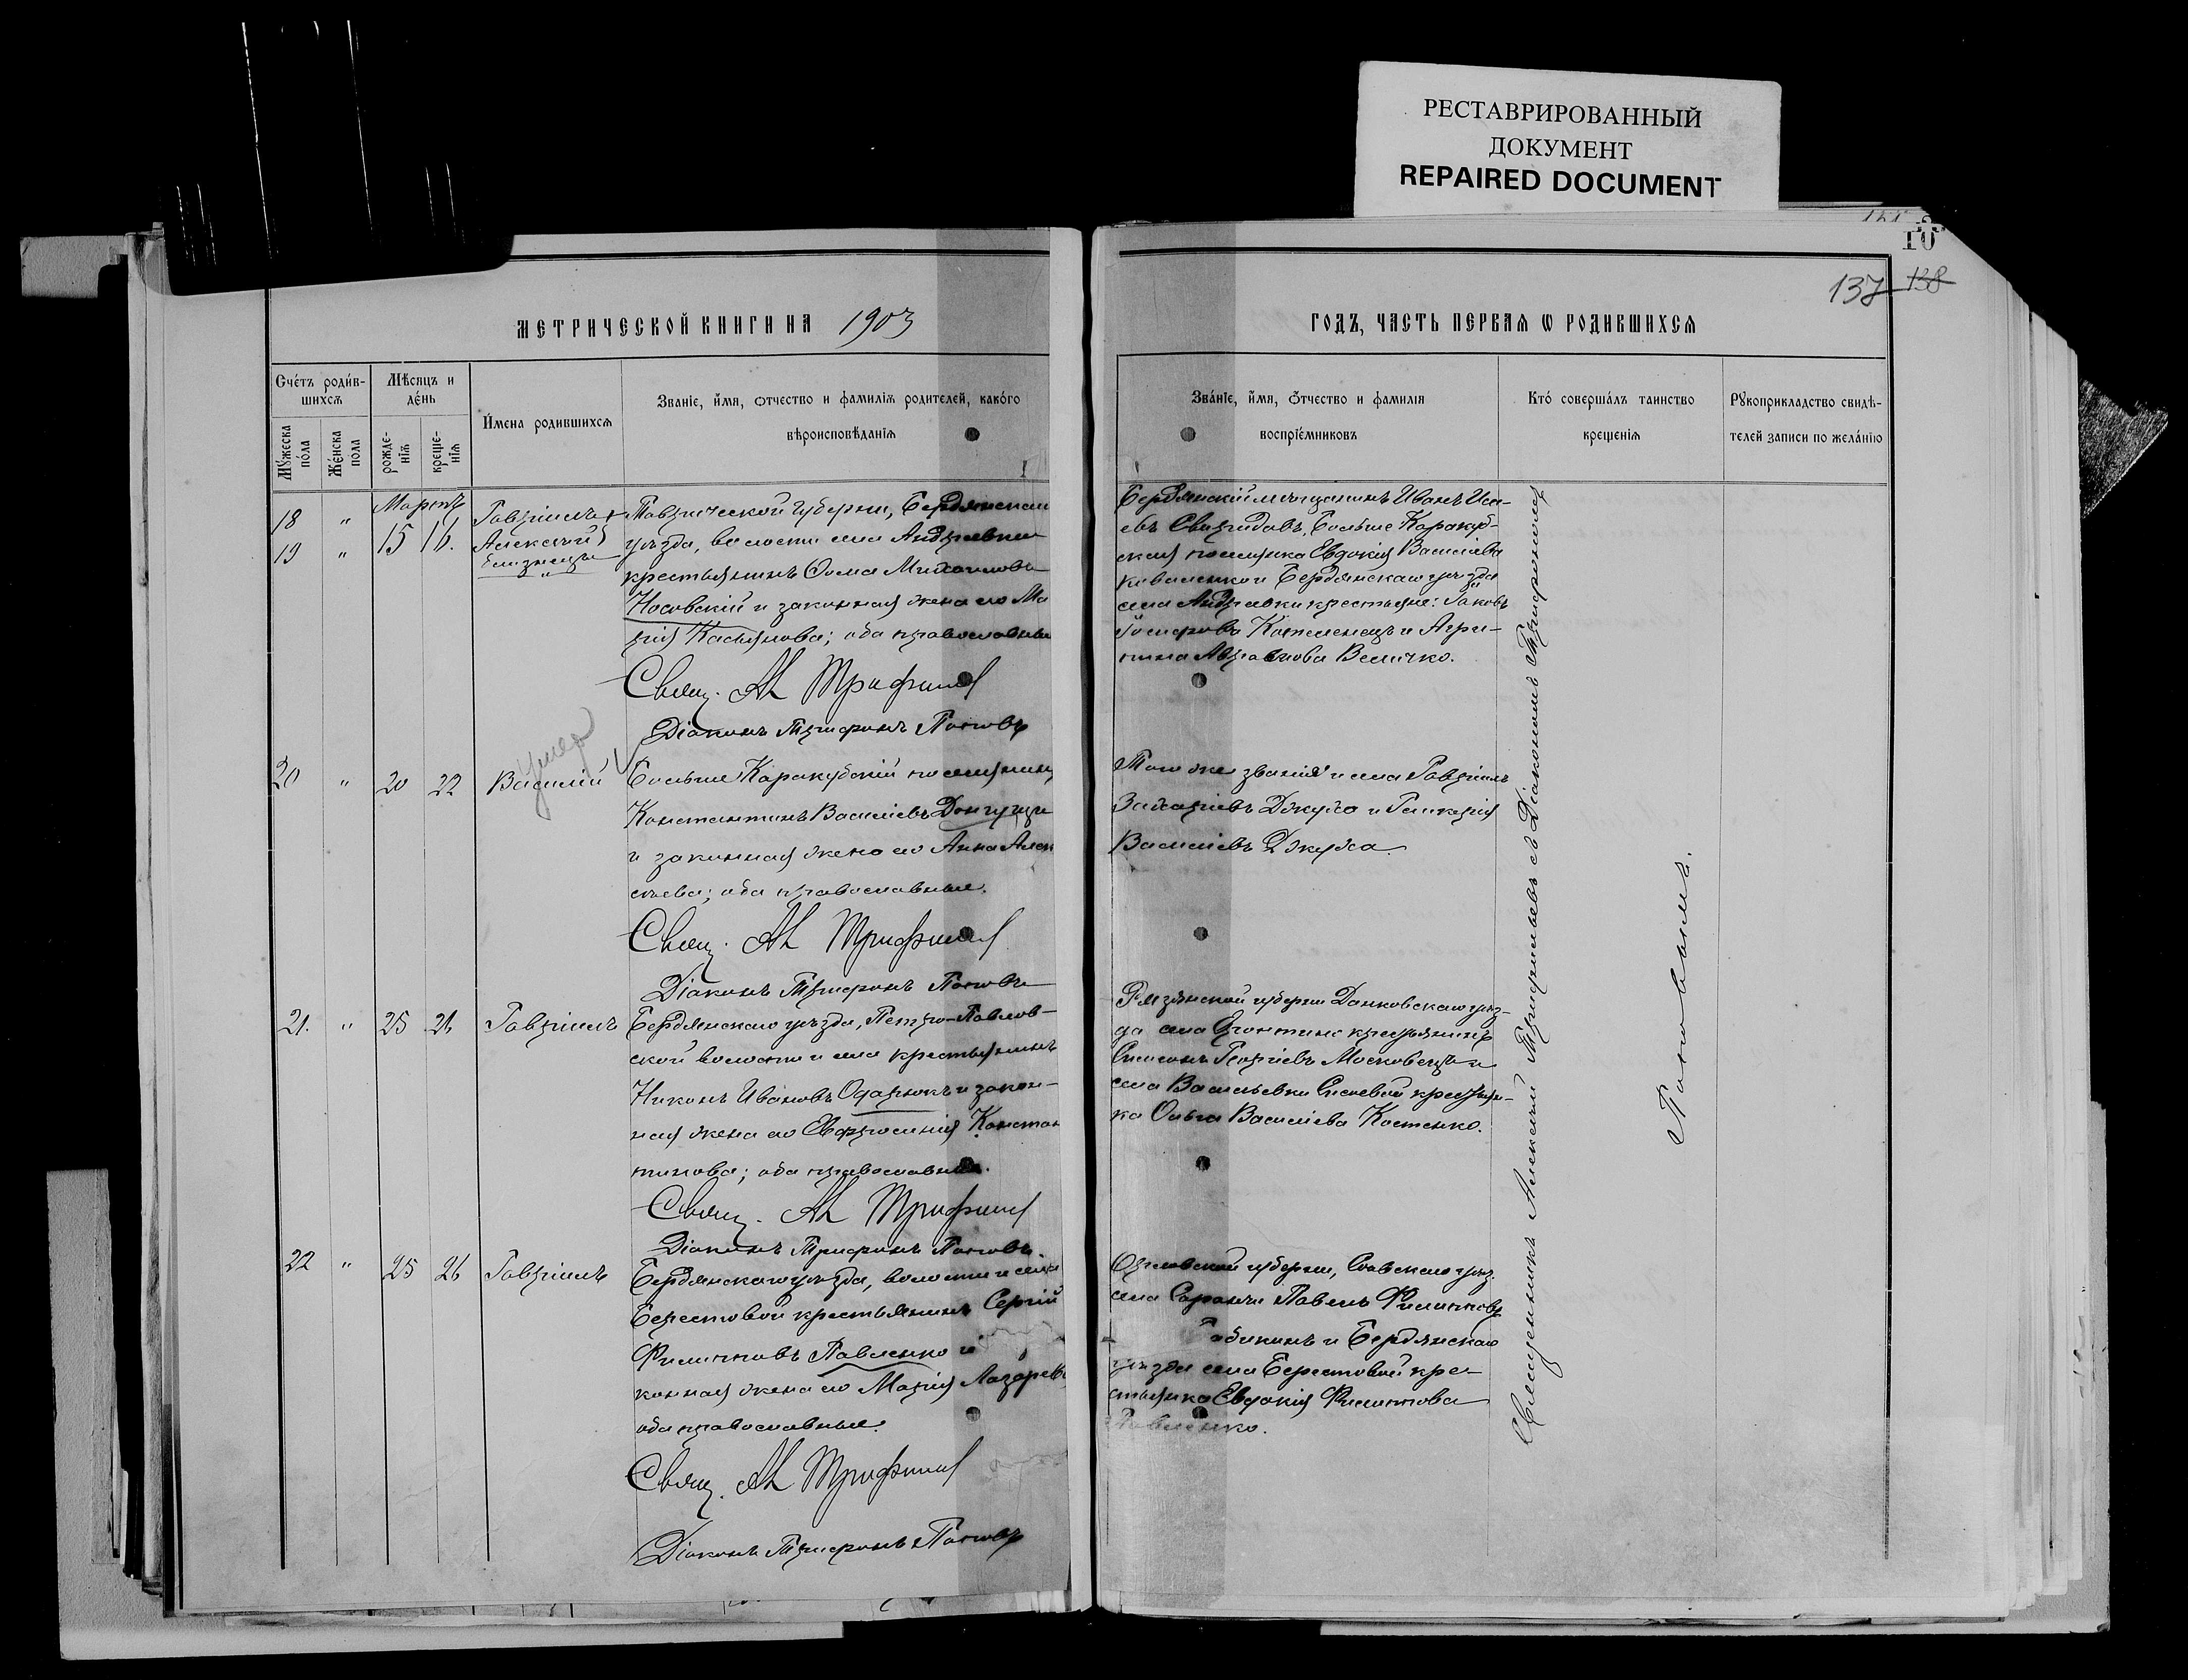 РЕСТАВРИРОВАННЫЙ
ДОКУМЕНТ
REPAIRED DOCUMENT
10
137 138
МЕТРИЧЕСКОЙ КНИГИ НА 1903
ГОДЪ, ЧАСТЬ ПЕРВАЯ Ѡ РОДИВШИХСЯ
Счéтъ роди́в-
шихсѧ
Мѣсяцъ и
дéнь
Мꙋ́жеска
по́ла
Жéнска
пола
рожде-
нїѧ
креще-
нїѧ
И́мена родившихсѧ
Званїе, и́мя, ѻтчество и фамилїѧ родителей, како́го
вѣроисповѣданїѧ
Зва́нїе, и́мя, ѻ́тчество и фамилїя
воспрїéмниковъ
Кто́ соверша́лъ таинство
крещенїѧ
Рꙋкоприкладство свидѣ-
телей записи по жела́нїю
Мартъ
18 " 15 16. Гавріилъ и
19 " Алексѣй
близнецы
Таврической губерніи, Бердянскаго
уѣзда, волости села Андреевки
крестьянинъ Ѳома Михаиловъ
Носовскій и законная жена его Ма
рія Касьянова; оба православные
Свящ. Ал Трифильев
Діаконъ Трифонъ Поповъ
Бердянскій мѣщанинъ Иванъ Иса-
евъ Свиридовъ, Больше Каракуб-
ская поселянка Евдокія Василіева
Коваленко и Бердянскаго уѣзда
села Андреевки крестьяне: Іаковъ
Іосифовъ Котленецъ и Агри-
пина Авраамова Величко.
умер
20 " 20 22 Василій
Больше Каракубскій поселянинъ
Константинъ Василіевъ Донгузце
и законная жена его Анна Алек
сѣева; оба православные.
Свящ. Ал Трифильев
Діаконъ Трифонъ Поповъ
Того же званія и села Гавріилъ
Захаріевъ Джуха и Гликерія
Василіевъ Джуха.
21. " 25 26 Гавріилъ
Бердянскаго уѣзда, Петро-Павлов-
ской волости и села крестьянинъ
Никонъ Ивановъ Одарюкъ и закон-
ная жена его Евфросинія Констан
тинова; оба православные.
Свящ. Ал Трифильев
Діаконъ Трифонъ Поповъ.
Рязанской губерніи Данковскаго уѣз-
да села крестьянинъ
Симеонъ Георгіевъ Московецъ и
села Васильевки крестьян-
ка Ольга Василіева Костенко.
22 " 25 26 Гавріилъ
Бердянскаго уѣзда, волости и села
Берестовой крестьянинъ Сергій
Филипповъ Павленко и
конная жена его Марія Лазарева
оба православные.
Свящ. Ал Трифильев
Діаконъ Трифонъ Поповъ
Орловской губерніи, Сѣвскаго уѣз.
села Саранчи Павелъ Филипповъ
Бабикинъ и Бердянскаго
уѣзда села Берестовой кре-
стьянка Евдокія Филиппова
Павленко.
Священникъ Алексій Трифильевъ съ Діакономъ Трифономъ
Поповымъ.